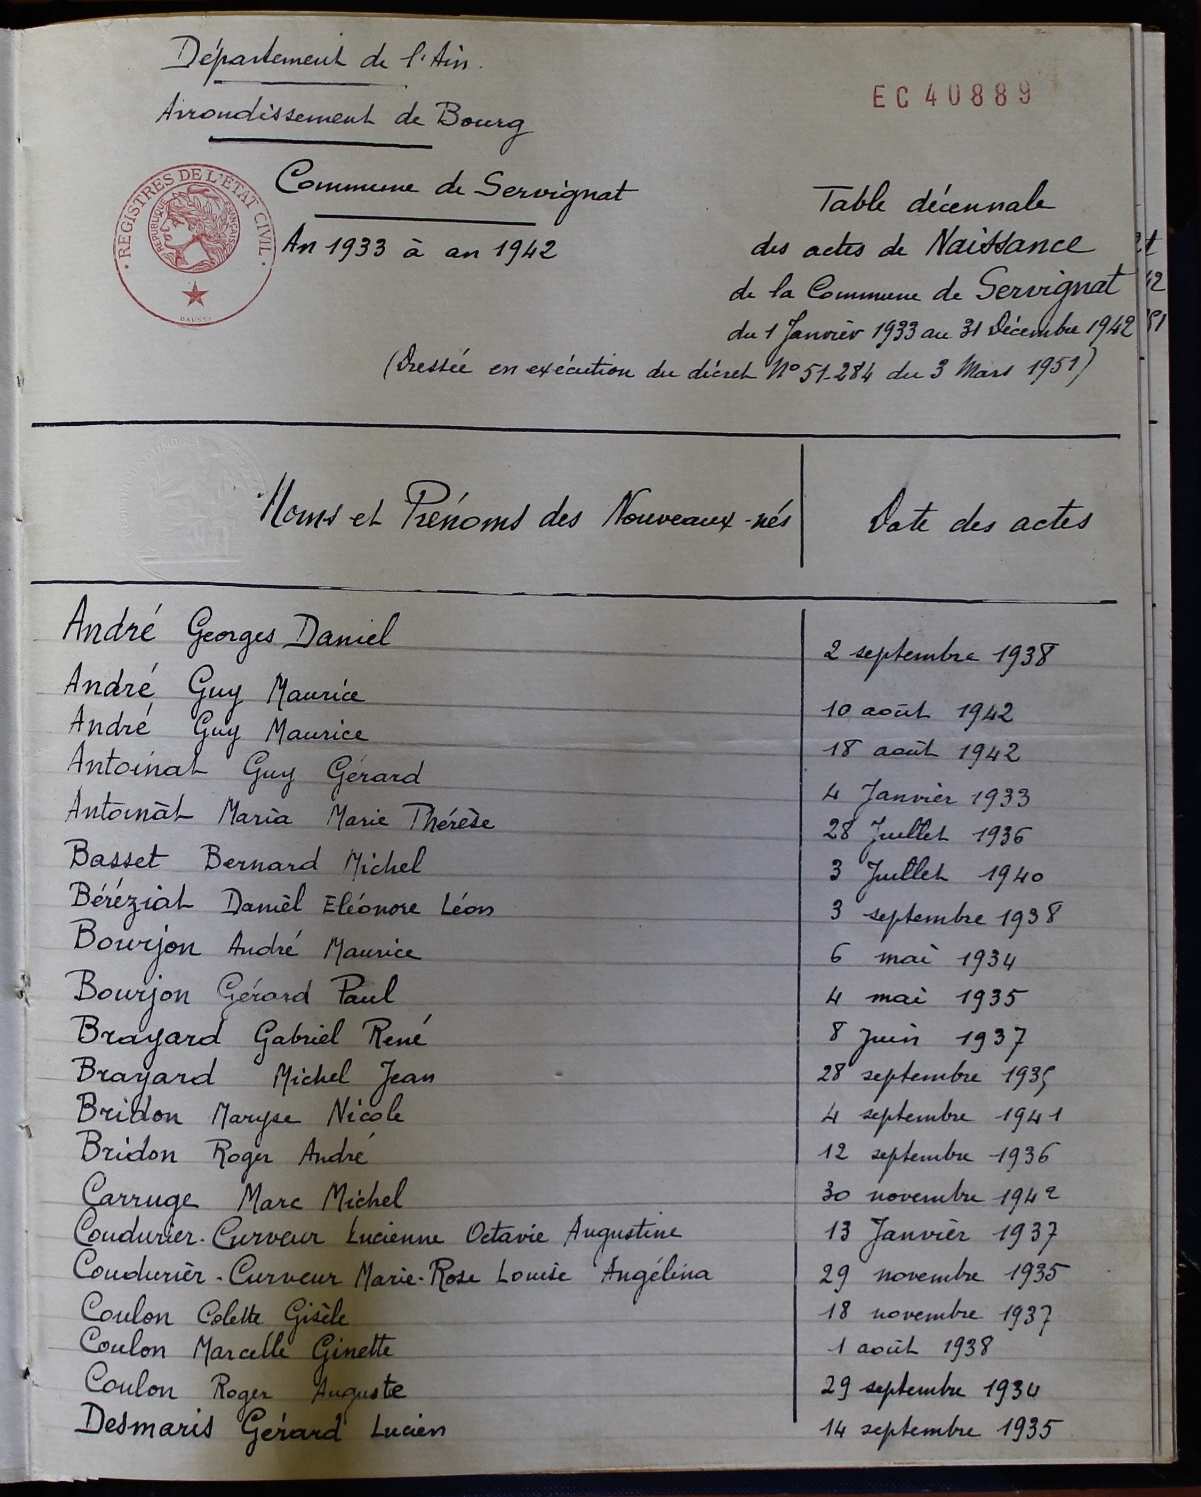 Département de l'Ain.
EC 40889
Arrondissement de Bourg
REGISTRES DE L'ETAT CIVIL
REPUBLIQUE FRANÇAISE
Commune de Servignat
An 1933 à an 1942
Table décennale
des actes de Naissance
de la Commune de Servignat
du 1 Janvier 1933 au 31 Décembre 1942
(Dressée en exécution du décret No 51-284 du 3 Mars 1951)
Noms et Prénoms des Nouveaux-nés Date des actes
André Georges Daniel 2 septembre 1938
André Guy Maurice 10 août 1942
André Guy Maurice 18 août 1942
Antoinat Guy Gérard 4 Janvier 1933
Antoinat Maria Marie Thérèse 28 Juillet 1936
Basset Bernard Michel 3 Juillet 1940
Béréziat Daniel Eléonore Léon 3 septembre 1938
Bourjon André Maurice 6 mai 1934
Bourjon Gérard Paul 4 mai 1935
Brayard Gabriel René 8 Juin 1937
Brayard Michel Jean 28 septembre 1935
Bridon Maryse Nicole 4 septembre 1941
Bridon Roger André 12 septembre 1936
Carruge Marc Michel 30 novembre 1942
Coudurier-Curveur Lucienne Octavie Augustine 13 Janvier 1937
Coudurier-Curveur Marie-Rose Louise Angélina 29 novembre 1935
Coulon Colette Gisèle 18 novembre 1937
Coulon Marcelle Ginette 1 août 1938
Coulon Roger Auguste 29 septembre 1934
Desmaris Gérard Lucien 14 septembre 1935